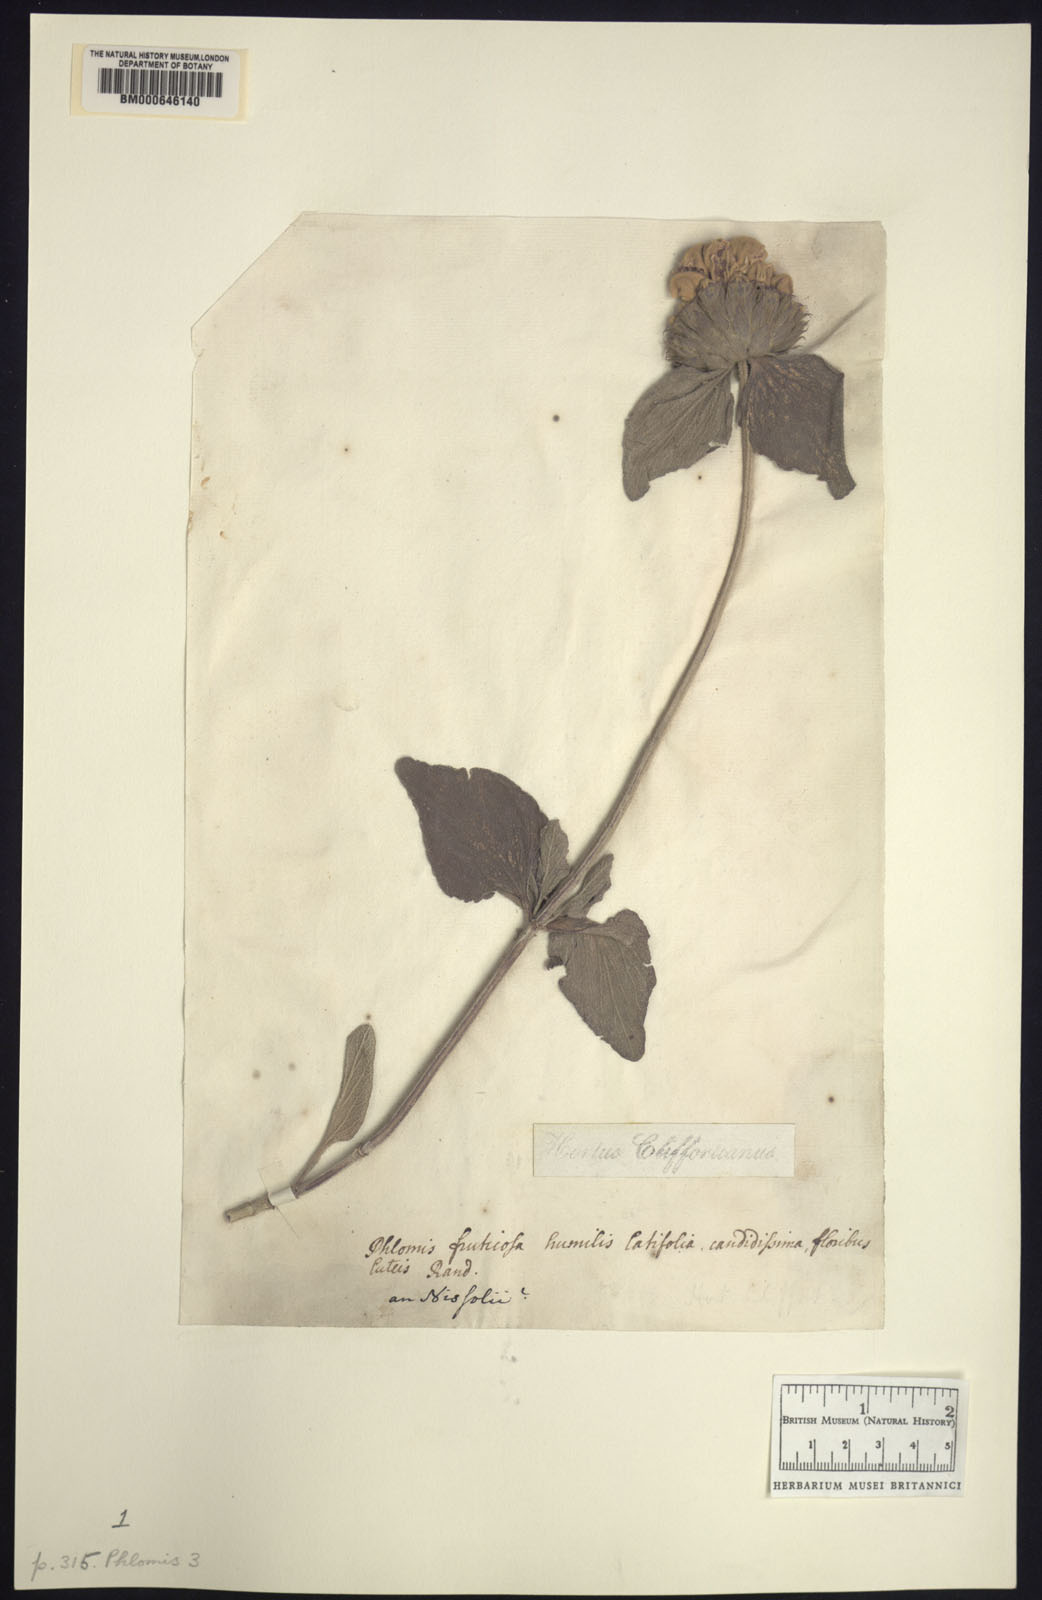 THE NATURAL HISTORY MUSEUM, LONDON
DEPARTMENT OF BOTANY
BM000646140
Hortus Cliffortianus
Phlomis fruticosa humilis latifolia candidissima, floribus
luteis Rand.
an Nissolii?
1 2
BRITISH MUSEUM (NATURAL HISTORY)
1 2 3 4 5
HERBARIUM MUSEI BRITANNICI
1
p. 315. Phlomis 3